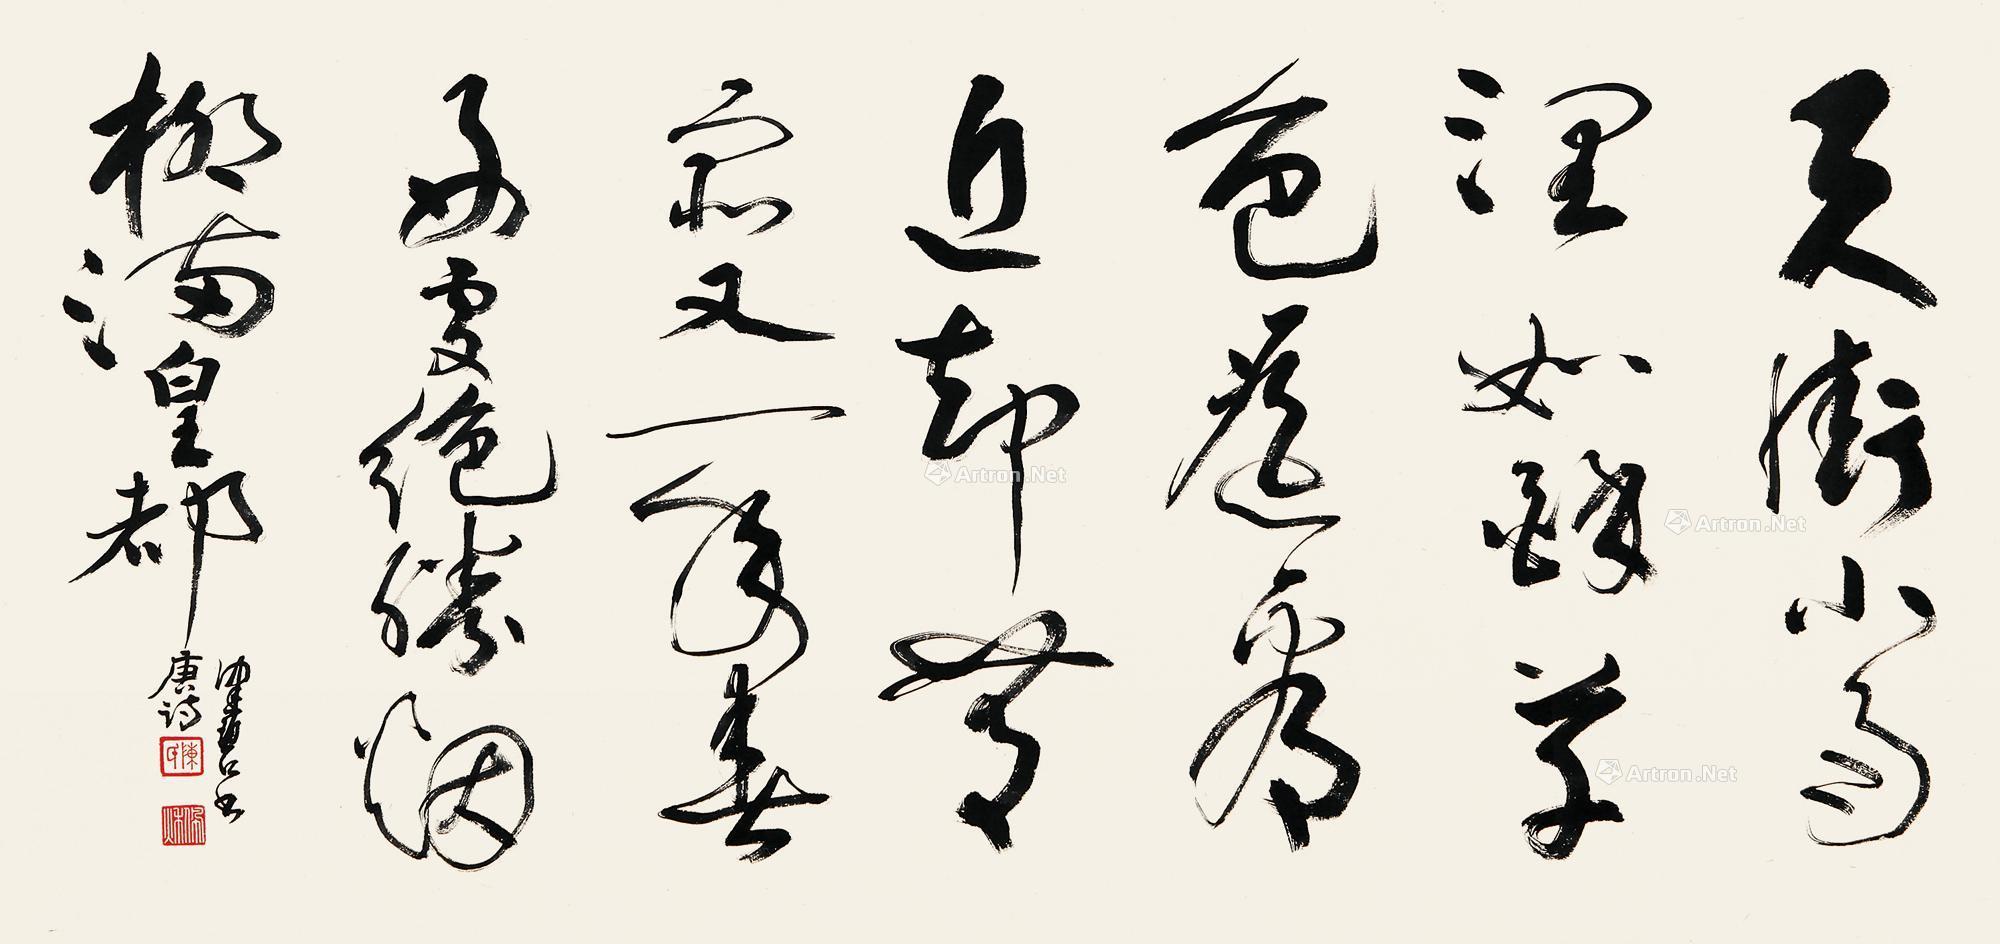 天街小雨
润如酥草
色遥看
近却無
最又一年春
好處绝勝烟
柳满皇都
健碧书
唐诗
陳氏
佩秋
Artron.Net
Artron.Net
Artron.Net